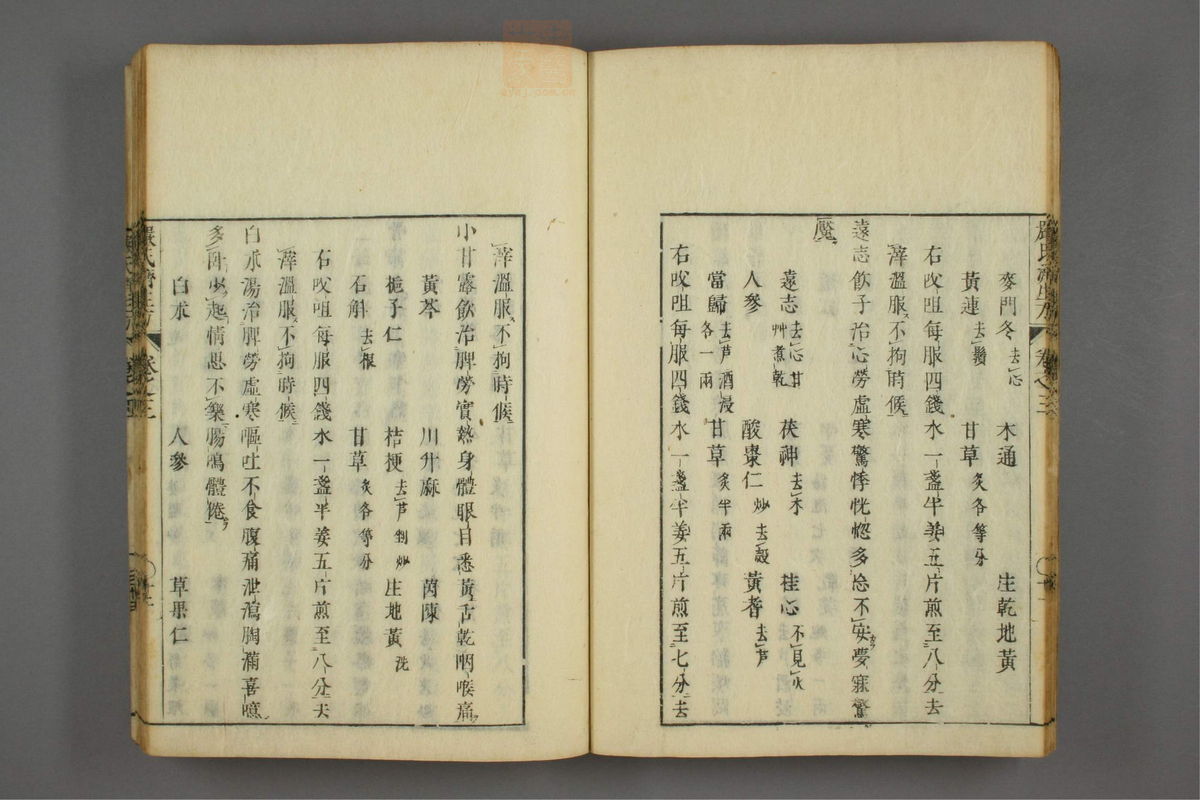 麥門冬 去心 木通 生乾地黃
黃連 去鬚 甘草 炙各等分
右㕮咀每服四錢水一盞半姜五片煎至八分去
滓溫服不拘時候
遠志飲子治心勞虛寒驚悸恍惚多忘不安夢寐驚
魘
遠志 去心甘艸煮乾 茯神 去木 桂心 不見火
人參 酸棗仁 炒去殼 黃耆 去芦
當歸 去芦酒浸各一兩 甘草 炙半兩
右㕮咀每服四錢水一盞半姜五片煎至七分去
滓溫服不拘時候
小甘露飲治脾勞實熱身體眼目悉黃舌乾咽喉痛
黃芩 川升麻 茵陳
梔子仁 桔梗 去芦剉炒 生地黃 洗
石斛 去根 甘草 炙各等分
右㕮咀每服四錢水一盞半姜五片煎至八分去
滓溫服不拘時候
白朮湯治脾勞虛寒嘔吐不食腹痛泄瀉胸滿喜噫
多臥少起情思不樂腸鳴體倦
白朮 人參 草果仁
嚴氏濟生方 卷之三